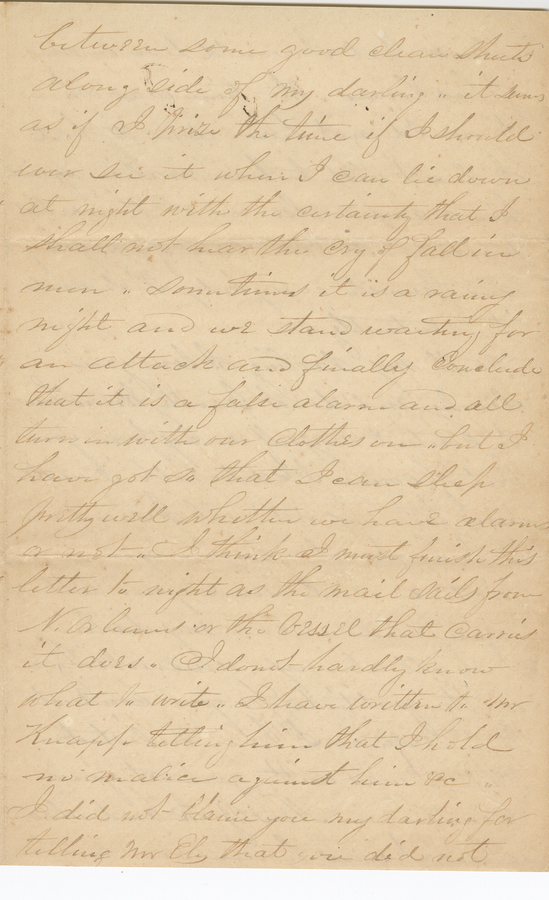 between some good clean sheets
along side of my darling " it seems
as if I prize the time if I should
ever see it when I can lie down
at night with the certainty that I
shall not hear the cry of fall in
men " sometimes it is a rainy
night and we stand waiting for
an attack and finally conclude
that it is a false alarm and all
turn in with our clothes on " but I
have got so that I can sleep
pretty well whether we have alarms
or not " I think I must finish this
letter to night as the mail sails from
N. Orleans or the vessel that carries
it does " I dont hardly know
what to write " I have written to Mr
Knapp telling him that I hold
no malice against him &c "
I did not blame you my darling for
telling Mr Ely that you did not